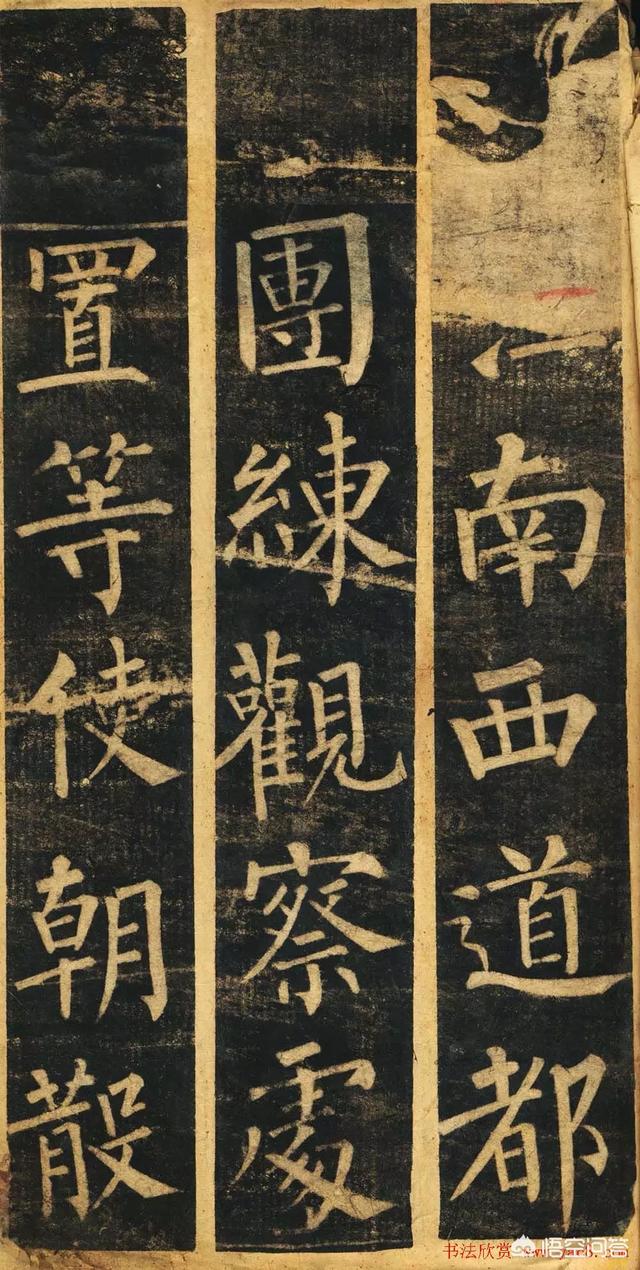 南西道都
團練觀察處
置等使朝散
书法欣赏
悟空问答